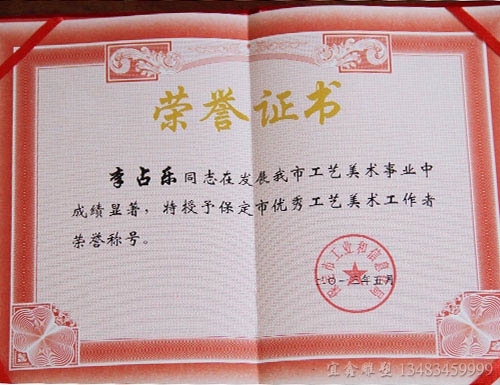 荣誉证书
李占乐同志在发展我市工艺美术事业中
成绩显著，特授予保定市优秀工艺美术工作者
荣誉称号。
保定市工业和信息化局
二〇一二年五月
宜鑫雕塑 13483459999